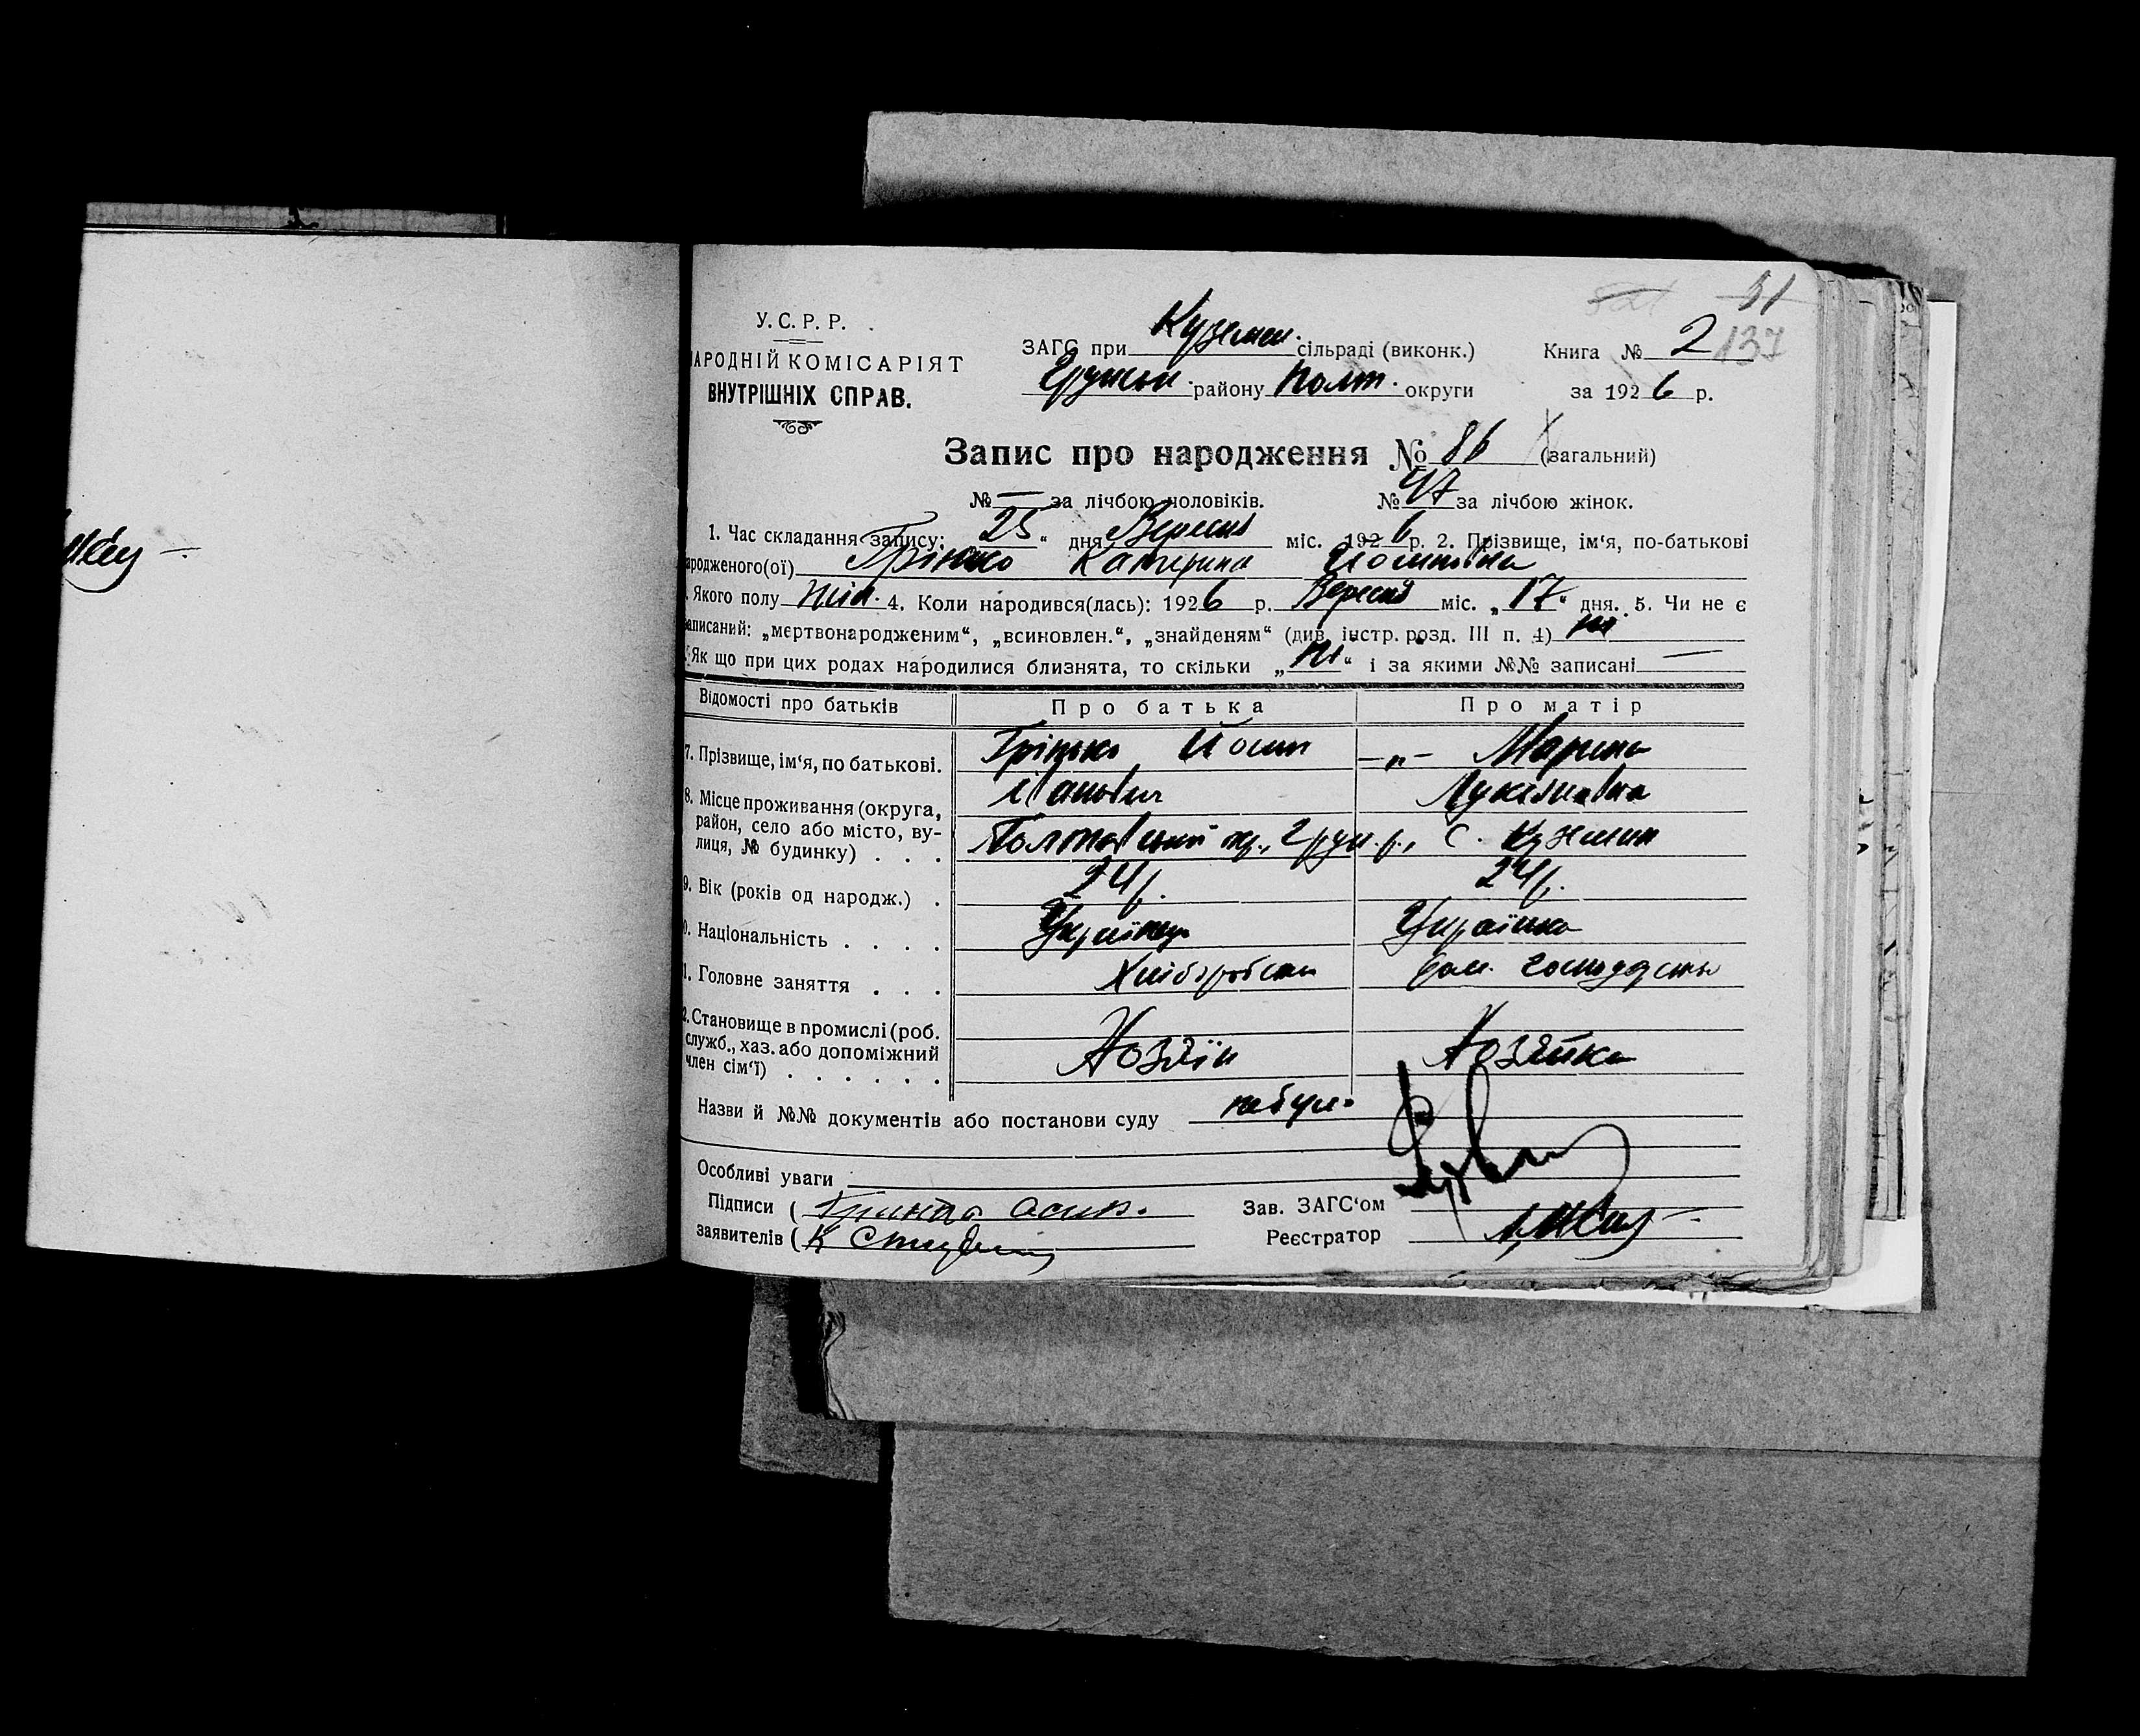 51
У. С. Р. Р.
АРОДНІЙ КОМІСАРІЯТ
ВНУТРІШНІХ СПРАВ.
ЗАГС при Куземен. сільраді (виконк.)
Грунськ. району Полт. округи
Книга № 2 137
за 1926 р.
Запис про народження № 86 (загальний)
№ — за лічбою чоловіків. № 47 за лічбою жінок.
1. Час складання запису: 25 “ дня Вересня міс. 1926 р. 2. Прізвище, ім‘я, по-батькові
ародженого(ої) Грінько Катерина Йосиповна
. Якого полу жін. 4. Коли народився(лась): 1926 р. Вересня міс. „17“ дня. 5. Чи не є
аписаний: „мертвонародженим“, „всиновлен.“, „знайденям“ (див. інстр. розд. III п. 4) ні
Як що при цих родах народилися близнята, то скільки „ні“ і за якими №№ записані —
Відомості про батьків Про батька Про матір
7. Прізвище, ім‘я, по батькові. Грінько Йосип —„— Марина
Іванович Лукянівна
8. Місце проживання (округа, район, село або місто, вулиця, № будинку) . . . Полтавський окр., Грун. р., с. Куземин
9. Вік (років од народж.) . 24 р. 24 р.
0. Національність . . . . Українець Українка
1. Головне заняття . . . Хліборобство дом. господарство
2. Становище в промислі (роб. служб., хаз. або допоміжний член сім‘ї) . . . . . . Хозяїн Хозяйка
Назви й №№ документів або постанови суду небуло
Особливі уваги
Підписи ( Гринько Осип.
заявителів ( К
Зав. ЗАГС‘ом
Реєстратор